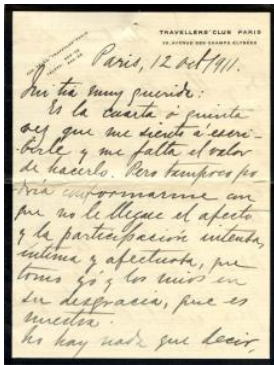 TRAVELLERS' CLUB PARIS
25, AVENUE DES CHAMPS ELYSÉES
Paris, 12 oct/911.
Mi tía muy querida:
Es la cuarta ó quinta
vez que me siento á escri-
-birle y me falta el valor
de hacerlo. Pero tampoco po
dría conformarme con
que no le llegue el afecto
y la participación intensa,
íntima y afectuosa, que
tomo yó y los mios en
su desgracia, que es
nuestra.
No hay nada que decir,